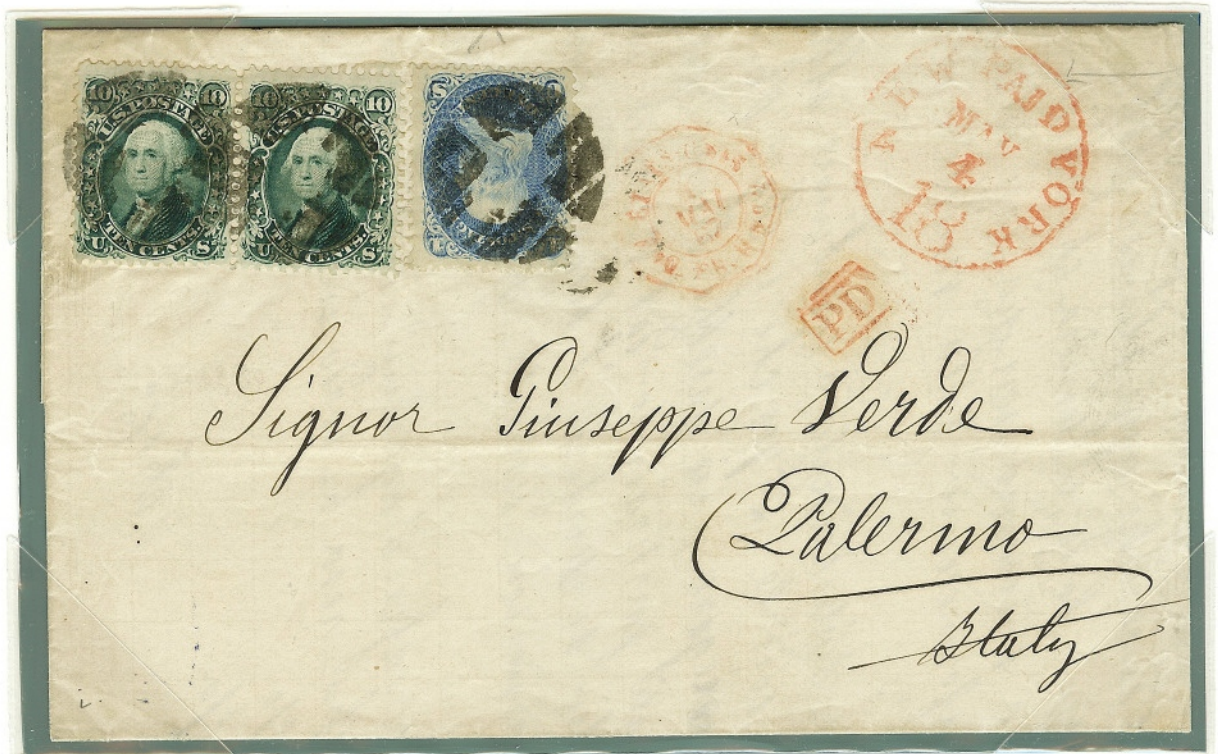 10 10
U.S. POSTAGE
TEN CENTS.
U S
10 10
U.S. POSTAGE
TEN CENTS.
U S
NEW PAID YORK
MAY
4
18
PD
Signor Giuseppe Verde
Palermo
Italy